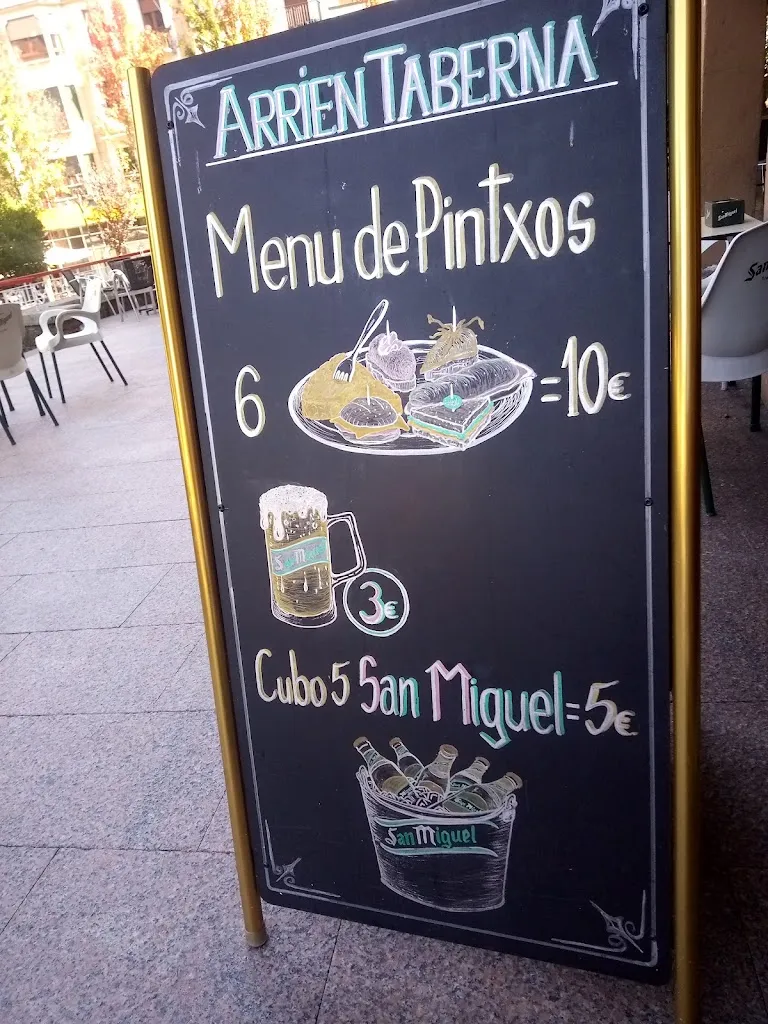 ARRIEN TABERNA
Menu de Pintxos
6 =10€
San Miguel
3€
Cubo 5 San Miguel=5€
San Miguel
San Miguel